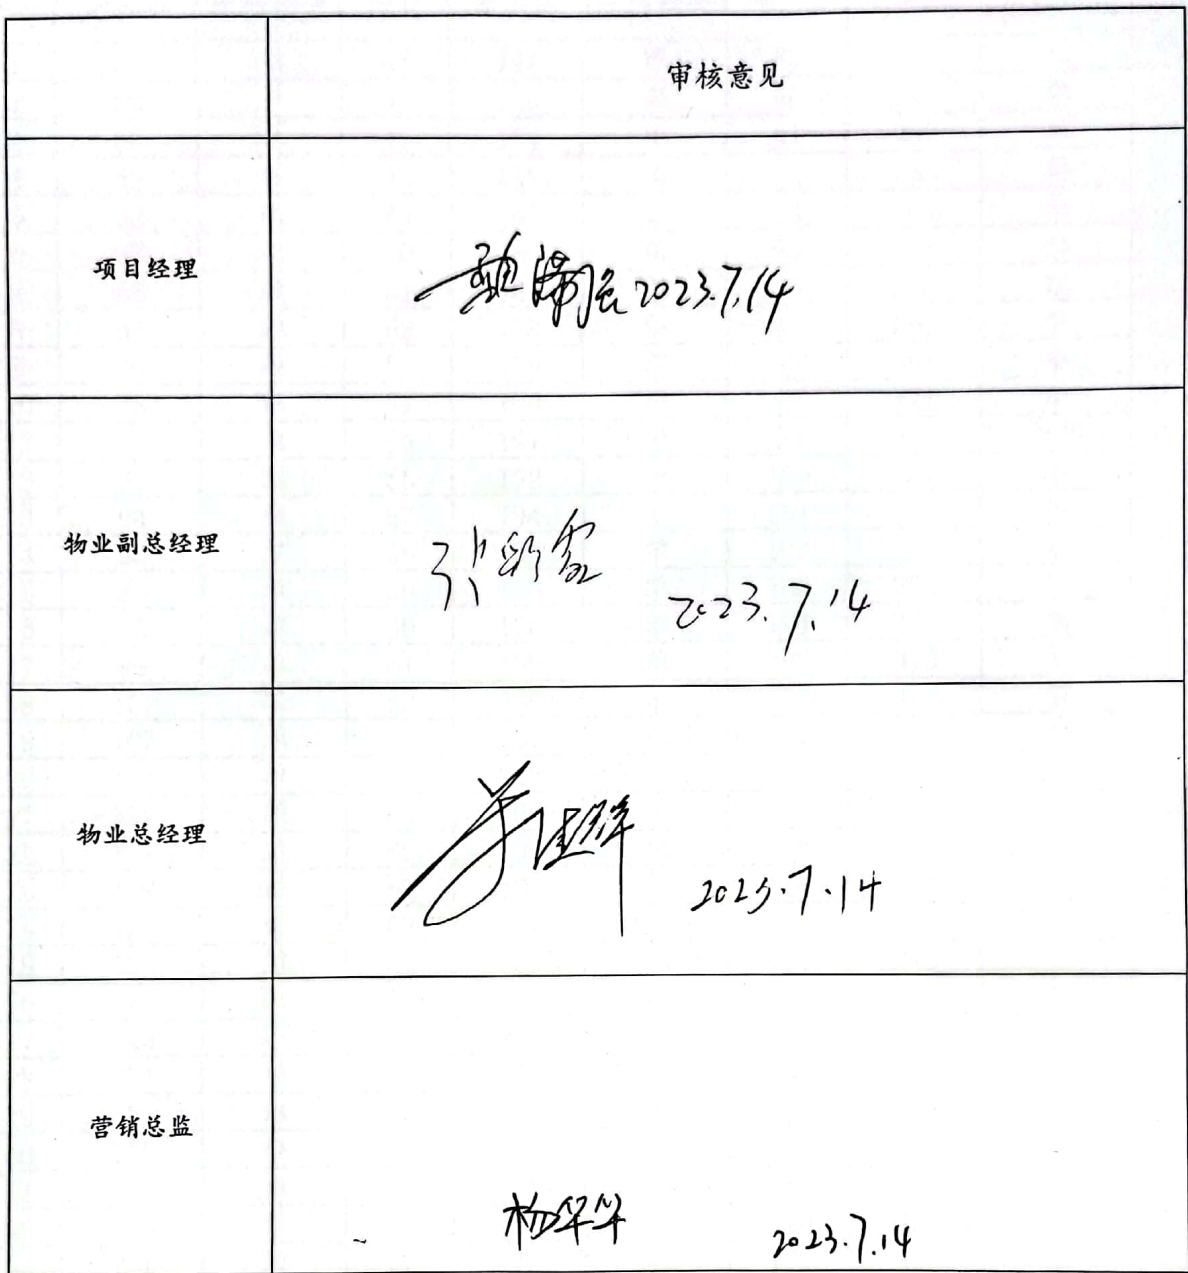 审核意见
项目经理
2023.7.14
物业副总经理
2023.7.14
物业总经理
2023.7.14
营销总监
杨华华
2023.7.14